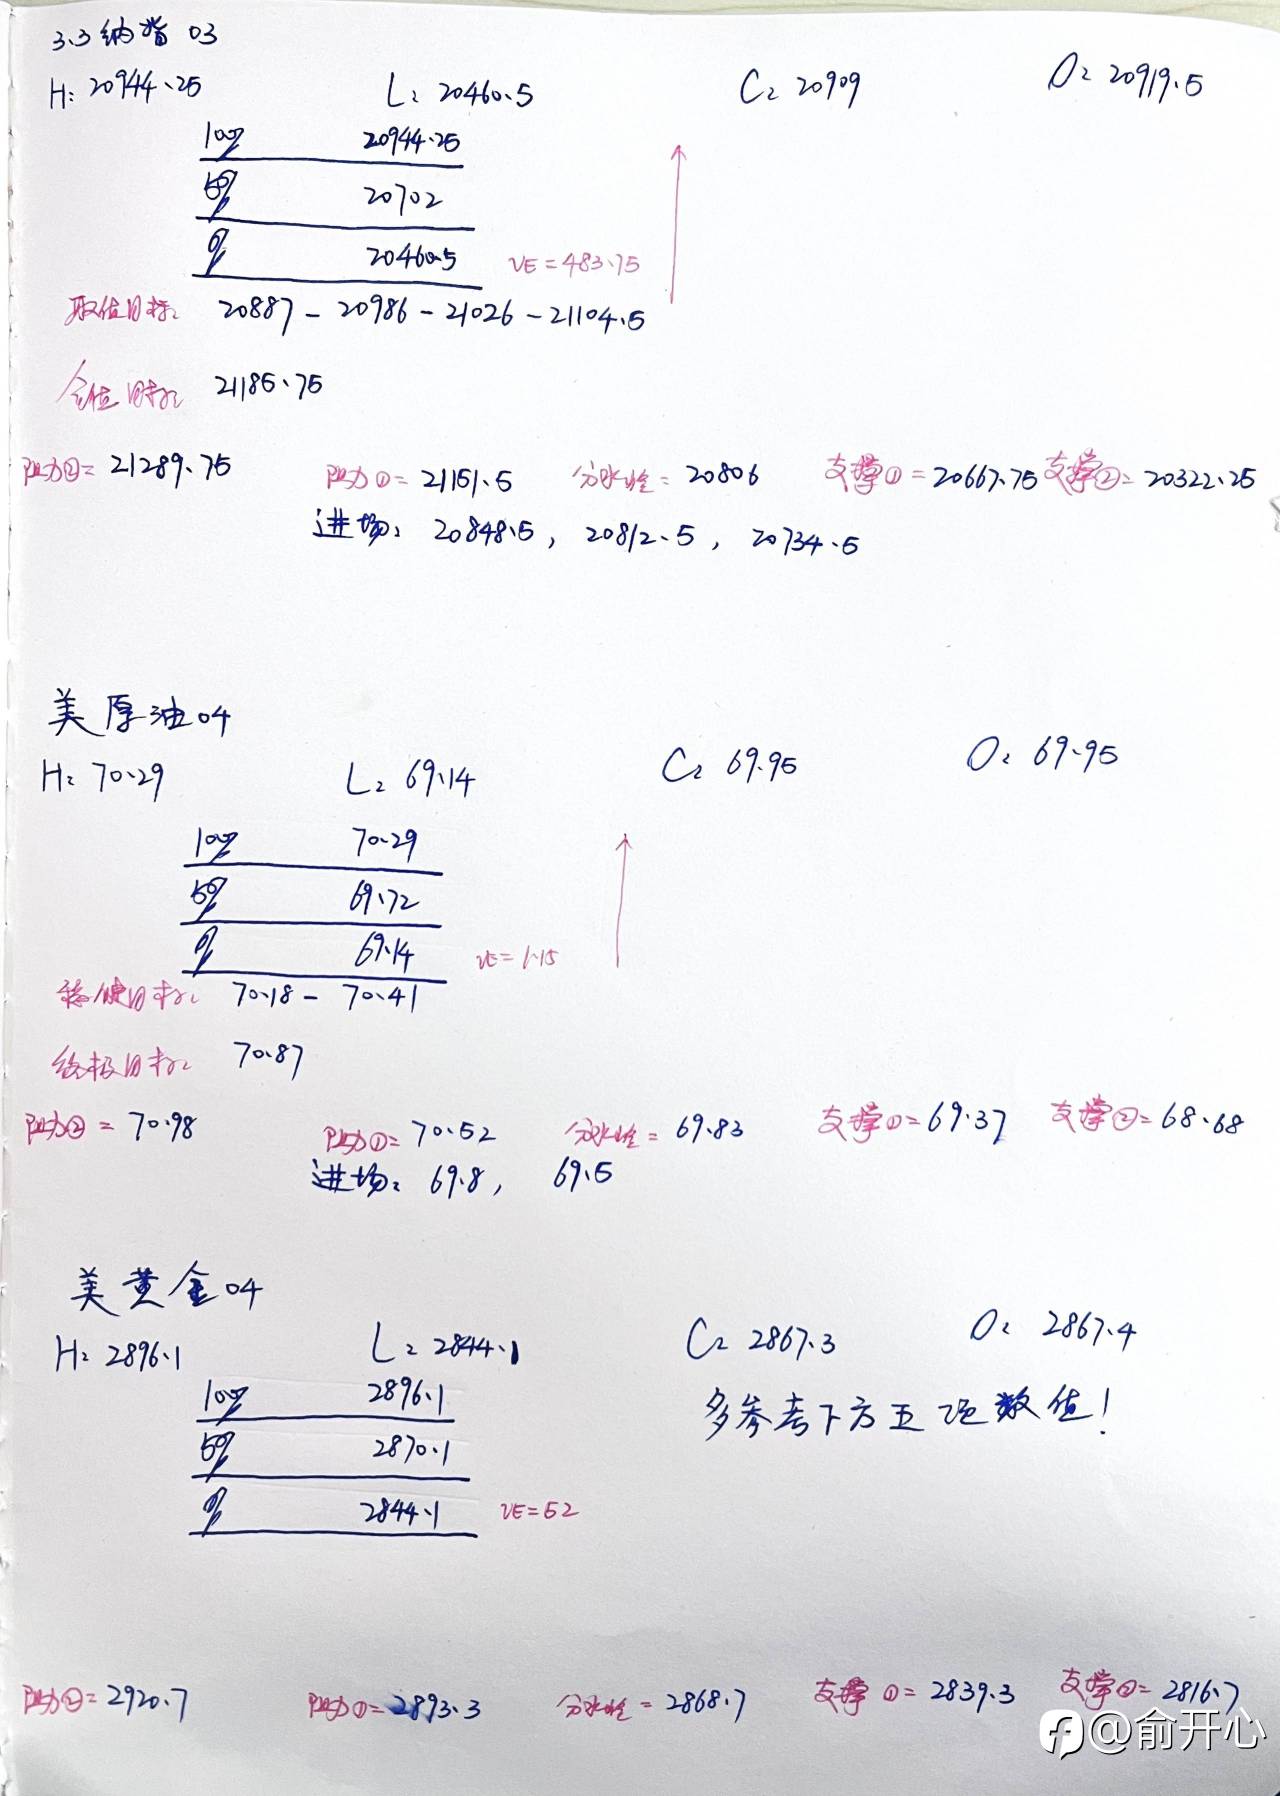 3.3纳指03
H: 20944.25 L: 20460.5 C: 20909 O: 20919.5
100% 20944.25
50% 20702
0% 20460.5 VE=483.75
取值目标: 20887 - 20986 - 21026 - 21104.5
仓位目标: 21185.75
阻力②=21289.75 阻力①=21151.5 分水岭=20806 支撑①=20667.75 支撑②=20322.25
进场: 20848.5, 20812.5, 20734.5
美原油04
H: 70.29 L: 69.14 C: 69.95 O: 69.95
100% 70.29
50% 69.72
0% 69.14 VE=1.15
稳健目标: 70.18 - 70.41
终极目标: 70.87
阻力②=70.98 阻力①=70.52 分水岭=69.83 支撑①=69.37 支撑②=68.68
进场: 69.8, 69.5
美黄金04
H: 2896.1 L: 2844.1 C: 2867.3 O: 2867.4
100% 2896.1 多参考下方五项数值!
50% 2870.1
0% 2844.1 VE=52
阻力②=2920.7 阻力①=2893.3 分水岭=2868.7 支撑①=2839.3 支撑②=2816.7
@俞开心